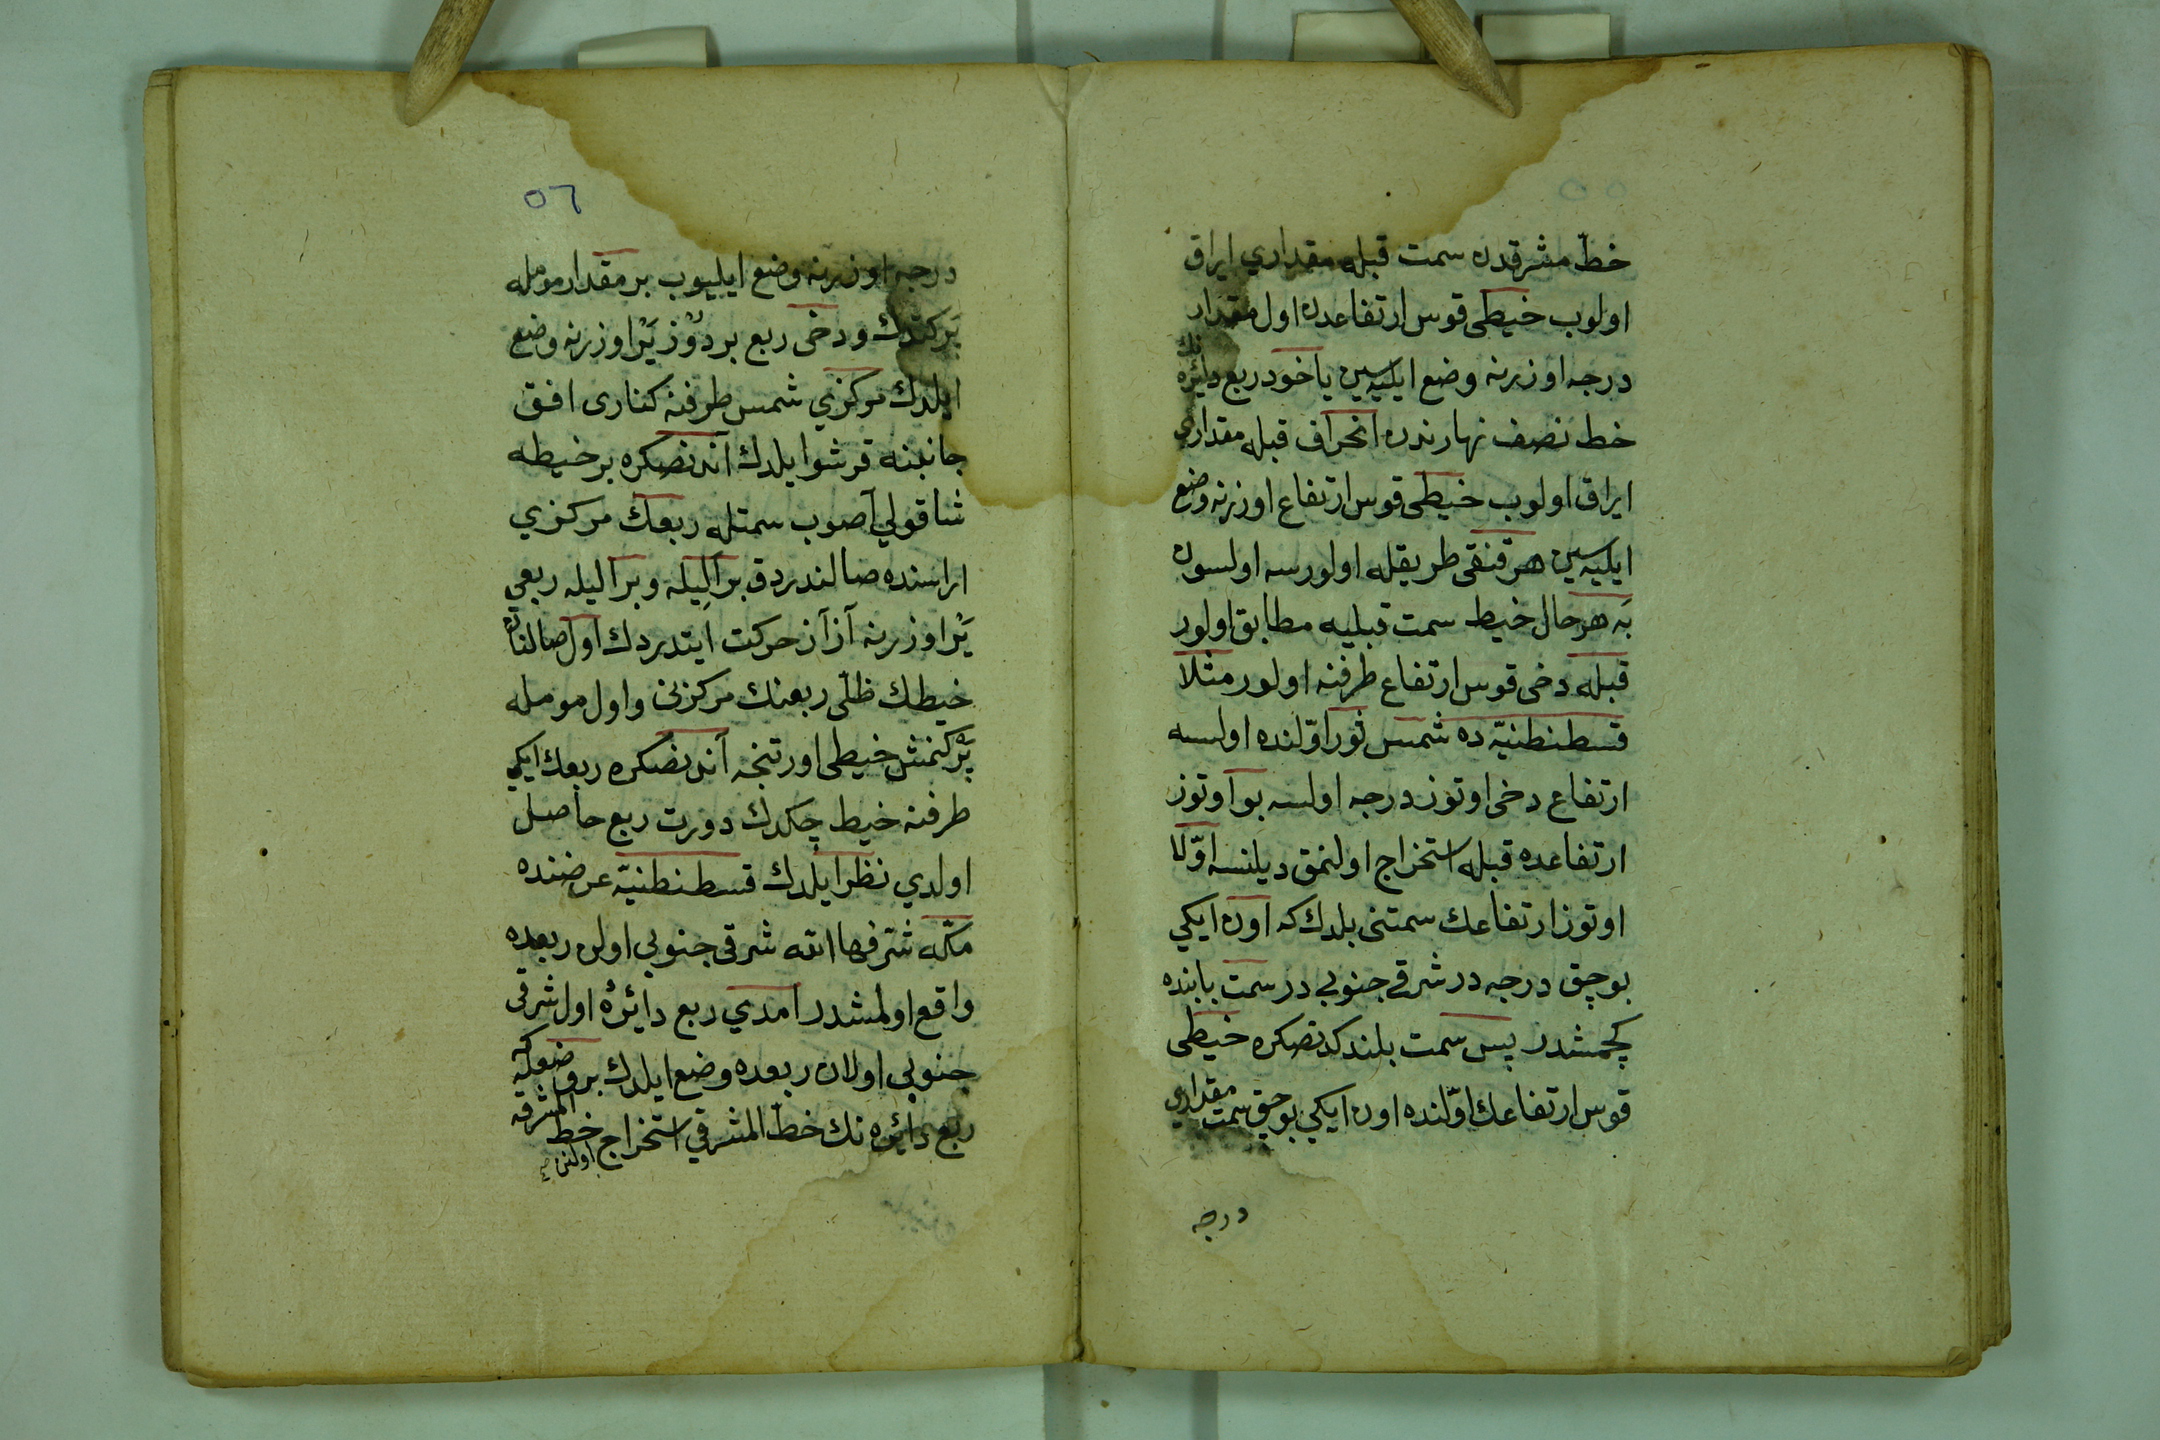 خطّ مشرقدن سمت قبله مقداري ايراق
اولوب خيطى قوس ارتفاعدن اول مقدار
درجه اوزرنه وضع ايليه‌سين ياخود ربع دائره نك
خط نصف نهارندن انحراف قبله مقداري
ايراق اولوب خيطى قوس ارتفاع اوزرنه وضع
ايليه‌سين هر قنقى طريقله اولورسه اولسون
بَه هر حال خيط سمت قبليه مطابق اولور
قبله دخى قوس ارتفاع طرفنه اولور مثلا
قسطنطنيّه ده شمس ثور اوّلنده اولسه
ارتفاع دخى اوتوز درجه اولسه بو اوتوز
ارتفاعده قبله استخراج اولنمق ديلنسه اوّلا
اوتوز ارتفاعك سمتنى بلدك كه اون ايكي
بوچق درجه در شرقي جنوبي در سمت بابنده
كچمشدر پس سمت بلندكدنصكره خيطى
قوس ارتفاعك اوّلنده اون ايكي بوچق سمت مقداري
درجه
٥٦
درجه اوزرنه وضع ايليوب بر مقدار مومله
بَركتدك ودخى ربع بر دُوز يَر اوزرنه وضع
ايلدك مركزي شمس طرفنه كنارى افق
جانبنه قرشو ايلدك آندنصكره بر خيطه
شاقولي آصوب سمتله ربعك مركزي
اراسنده صالندردق بر اَلِيله وبر اليله ربعي
يَر اوزرنه آز آز حركت ايتدردك اول صالنان
خيطك ظلّى ربعنك مركزنى واول مومله
بَركنمش خيطى اورتنجه آندنصكره ربعك ايكي
طرفنه خيط چكدك دورت ربع حاصل
اولدي نظر ايلدك قسطنطنيّه عرضنده
مكّه شرّفها الله شرقى جنوبي اولن ربعده
واقع اولمشدر امدي ربع دائرهٔ اول شرقى
جنوبي اولان ربعده وضع ايلدك بر وضعله كه
ربع دائره نك خطّ المشرقي استخراج اولنن خط المشرقه